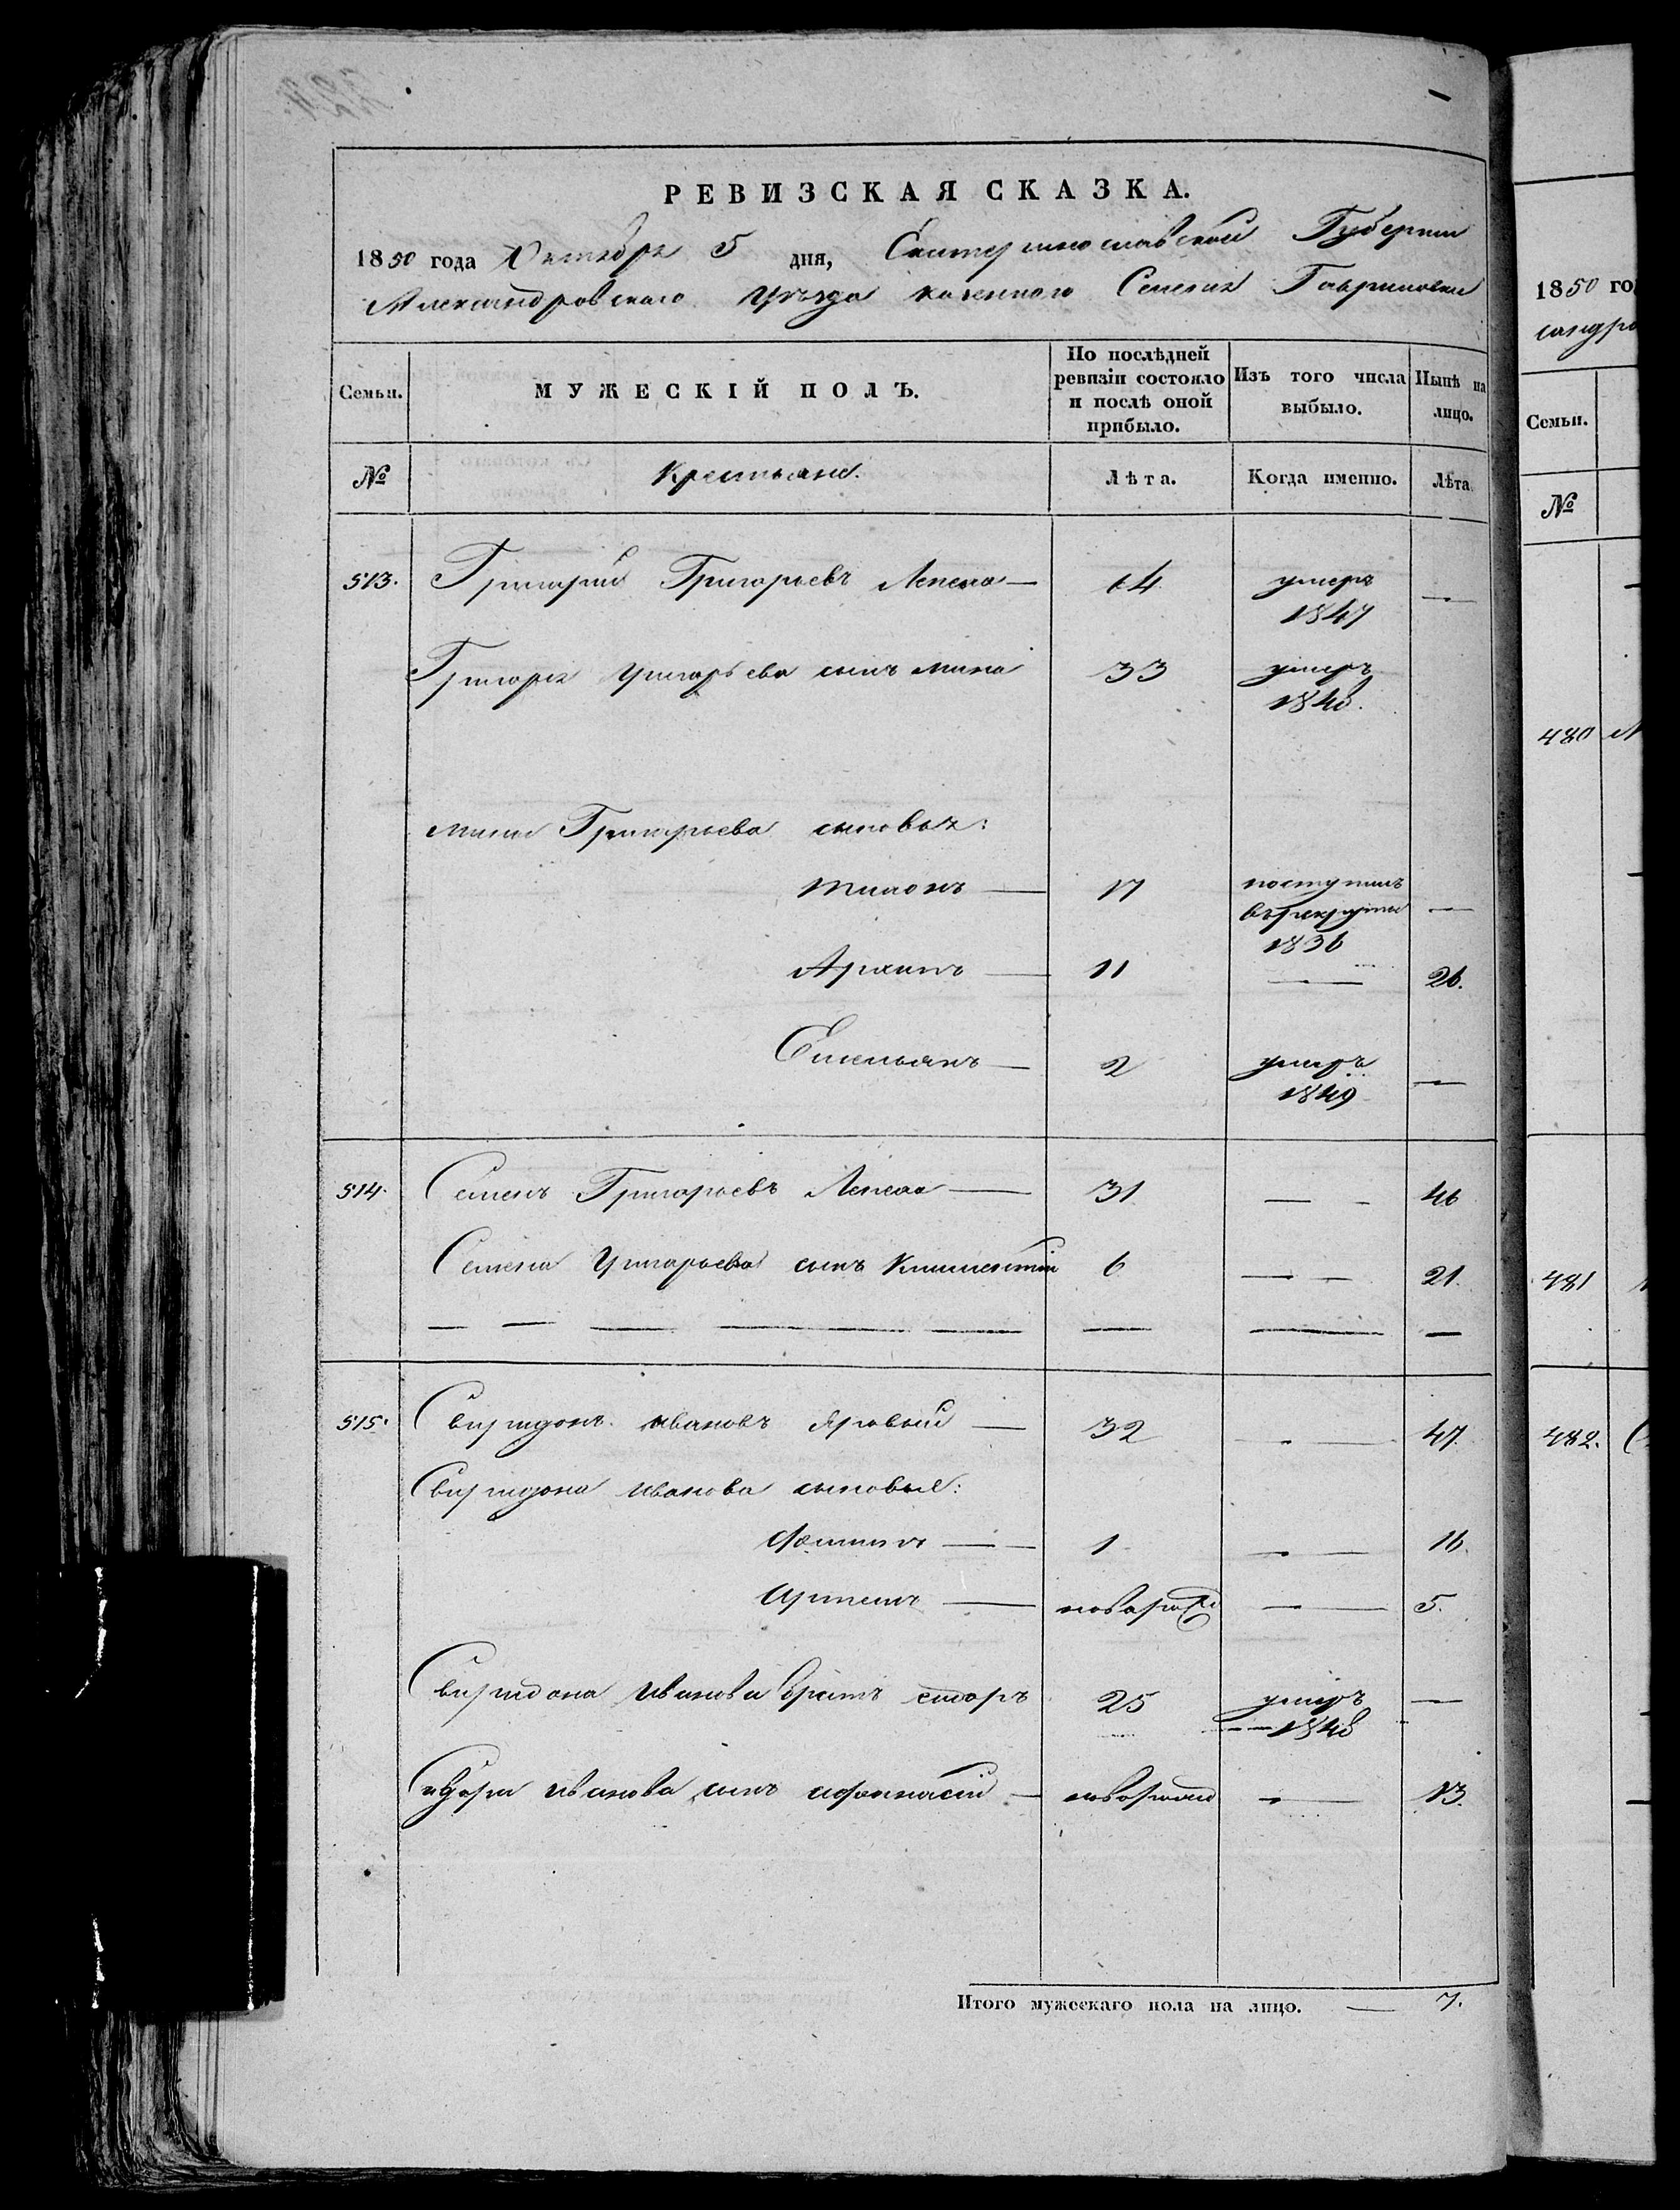 РЕВИЗСКАЯ СКАЗКА.
1850 года Октября 5 дня, Екатеринославской Губернии
Александровского уѣзда казенного Селения Гавриловки
Семьи. МУЖЕСКІЙ ПОЛЪ. По послѣдней ревизіи состояло и послѣ оной прибыло. Изъ того числа выбыло. Нынѣ на лицо.
№ Крестьяне. Лѣта. Когда именно. Лѣта
513. Григорий Григорьевъ Лепеха — 64 умеръ 1847 —
Григория Григорьева сынъ Мина 33 умеръ 1848.
Мины Григорьева сыновья:
Тихонъ — 17 поступилъ въ рекруты 1836 —
Архипъ — 11 — 26.
Емельянъ — 2 умеръ 1849 —
514. Семенъ Григорьевъ Лепеха — 31 — 46
Семена Григорьева сынъ Климентий 6 — 21.
515. Свиридонъ Ивановъ Яровый — 32 — 47
Свиридона Иванова сыновья:
1 — 16.
Артемъ — новорожд — 5.
Свиридона Иванова братъ Сидоръ 25 умеръ 1848 —
Сидора Иванова сынъ Афанасий — новорожд — 13.
Итого мужескаго пола на лицо. — 7.
1850 го
сандро
Семьи.
№
480
481
482.